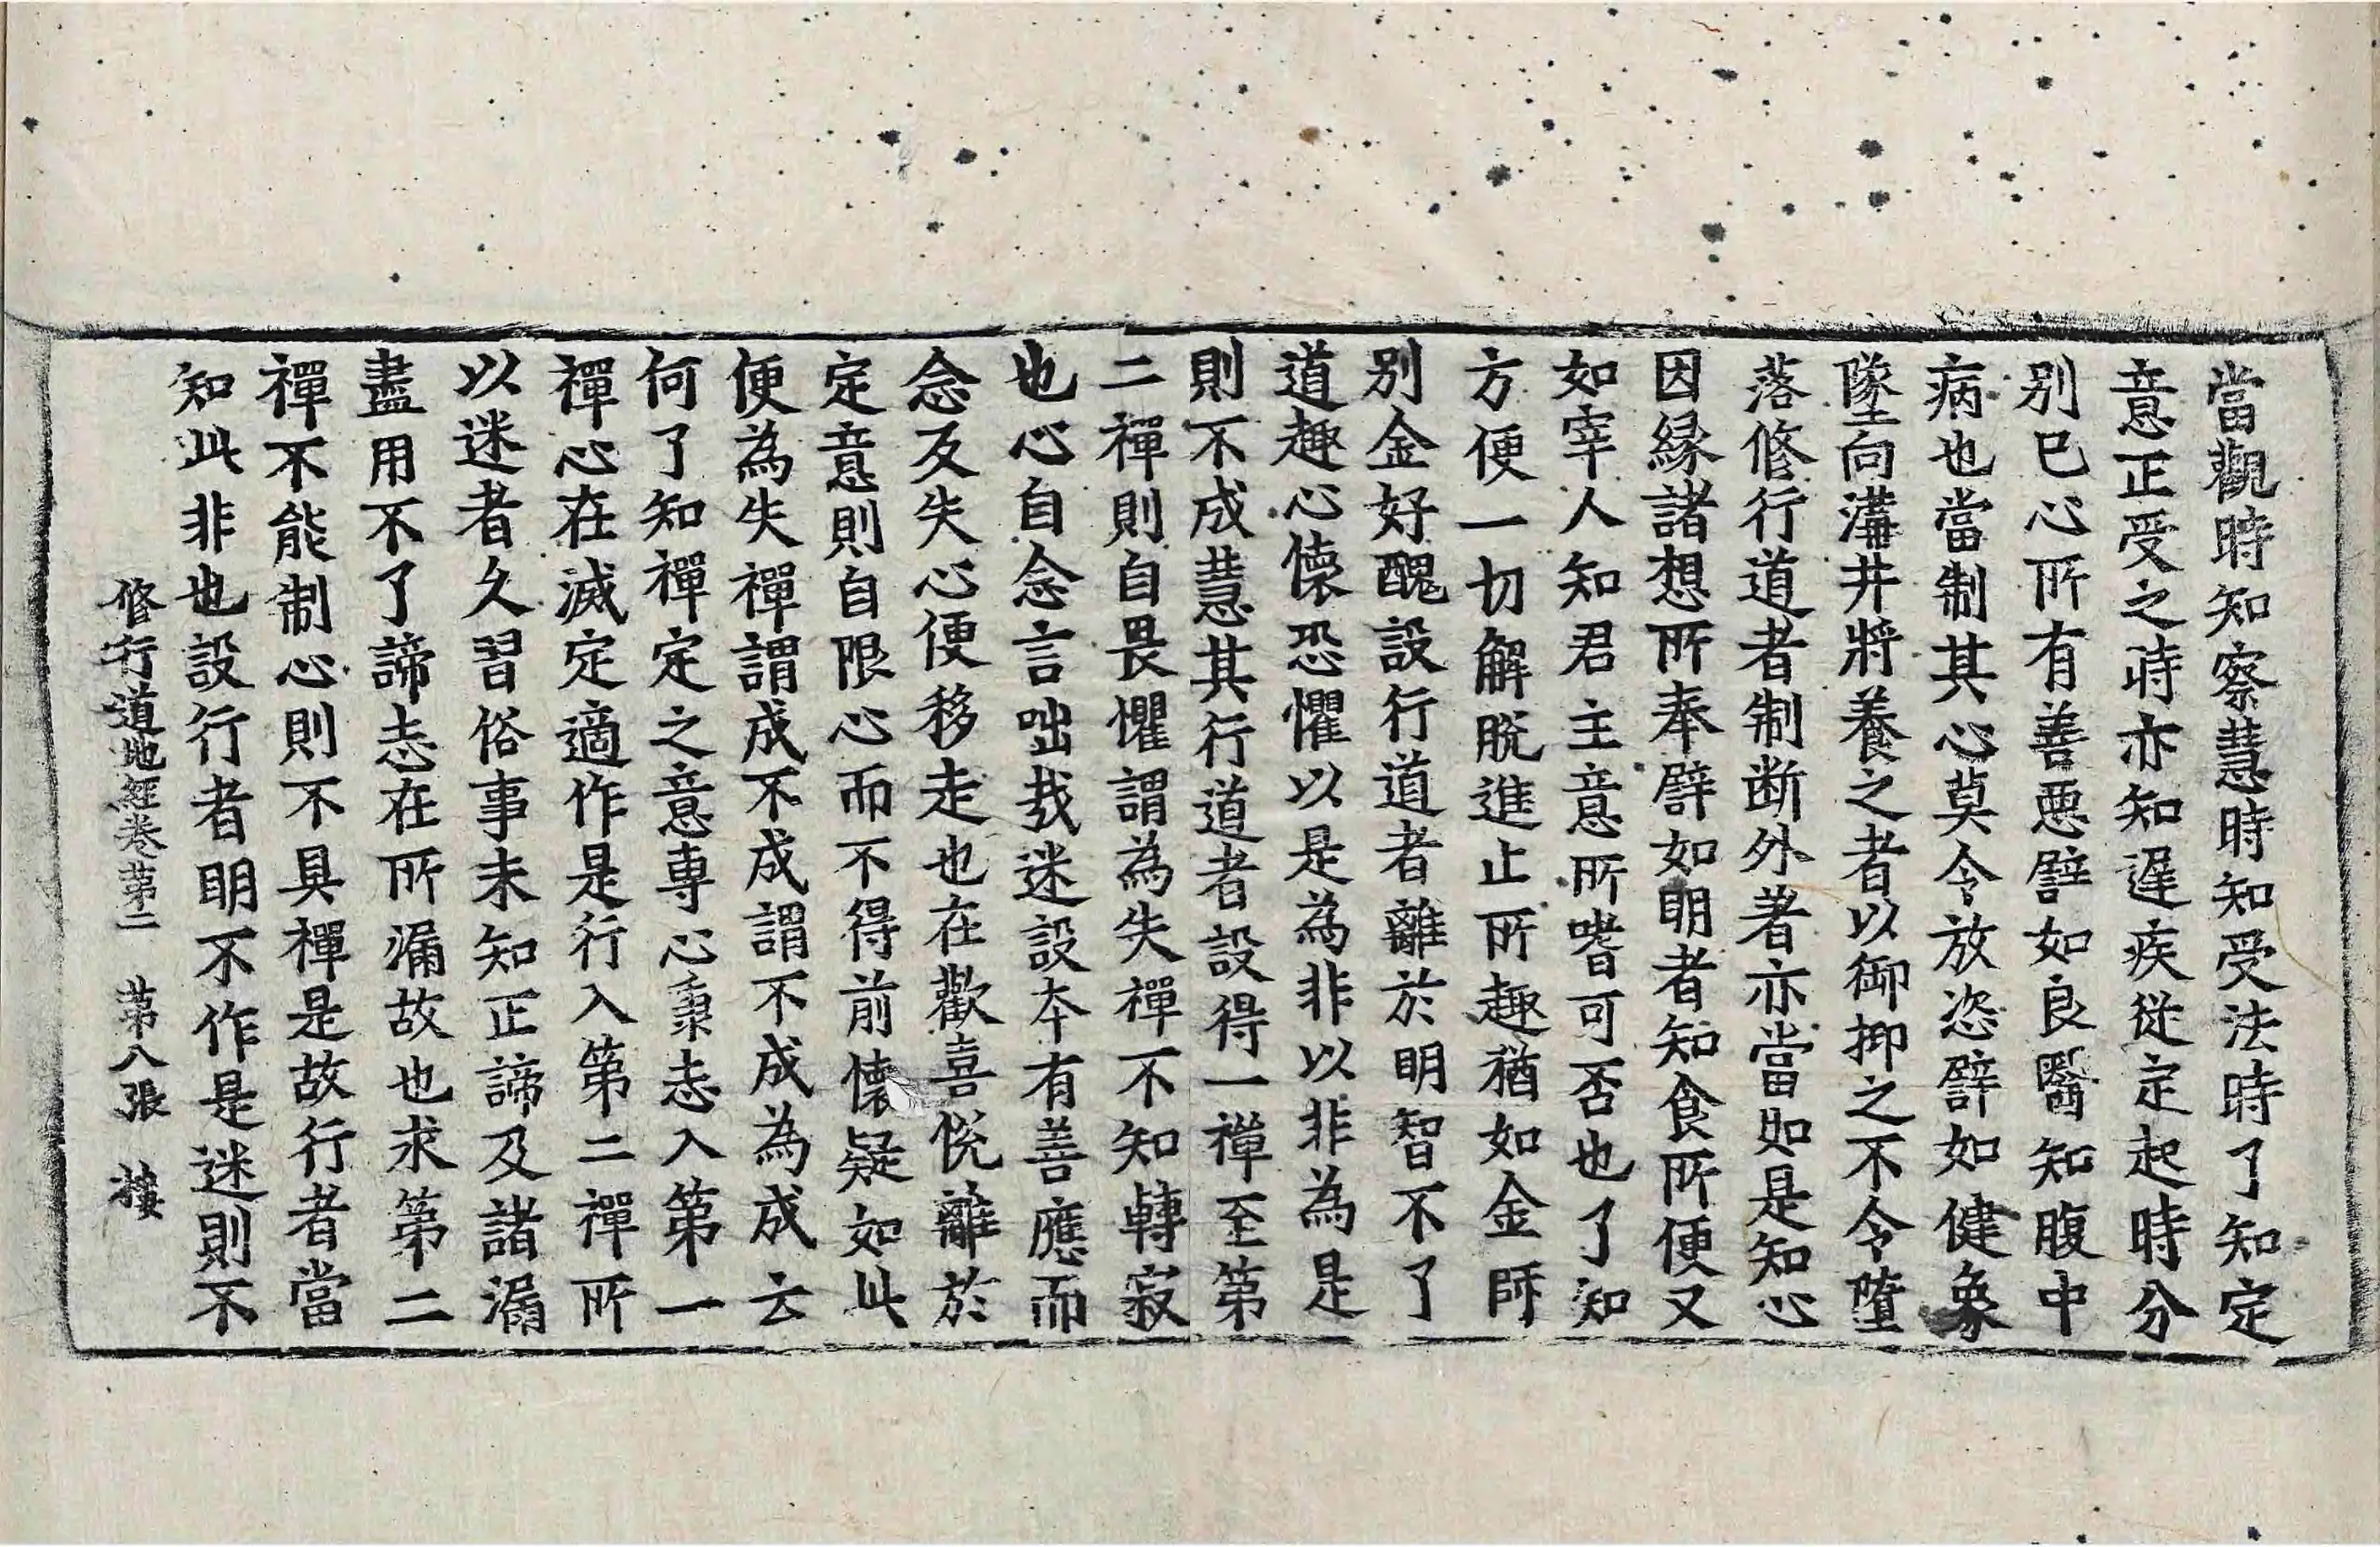 當觀時知察慧時知受法時了知定
意正受之時亦知遲疾從定起時分
别巳心所有善惡譬如良醫知腹中
病也當制其心莫令放恣譬如健象
墜向溝井將養之者以御抑之不令墮
落修行道者制断外著亦當如是知心
因縁諸想所奉譬如明者知食所便又
如宰人知君主意所嗜可否也了知
方便一切解脫進止所趣猶如金師
别金好醜設行道者離於明智不了
道趣心懐恐懼以是為非以非為是
則不成慧其行道者設得一禪至第
二禪則自畏懼謂為失禪不知轉寂
也心自念言咄哉迷設本有善應而
念反失心便移走也在歡喜悅離於
定意則自限心而不得前懐疑如此
便為失禪謂成不成謂不成為成云
何了知禪定之意專心秉志入第一
禪心在滅定適作是行入第二禪所
以迷者久習俗事未知正諦及諸漏
盡用不了諦志在所漏故也求第二
禪不能制心則不具禪是故行者當
知此非也設行者明不作是迷則不
修行道地經卷第二　第八張　樓